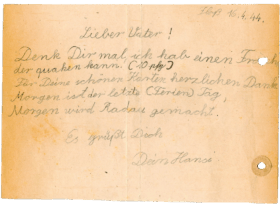 16.4.44.
Lieber Vater!
Denk Dir mal ich hab einen Frosch
der quaken kann.
Für Deine schönen Karten herzlichen Dank
Morgen ist der letzte (Ferien) Tag,
Morgen wird Radau gemacht.
Es grüßt Dich
Dein Hans.